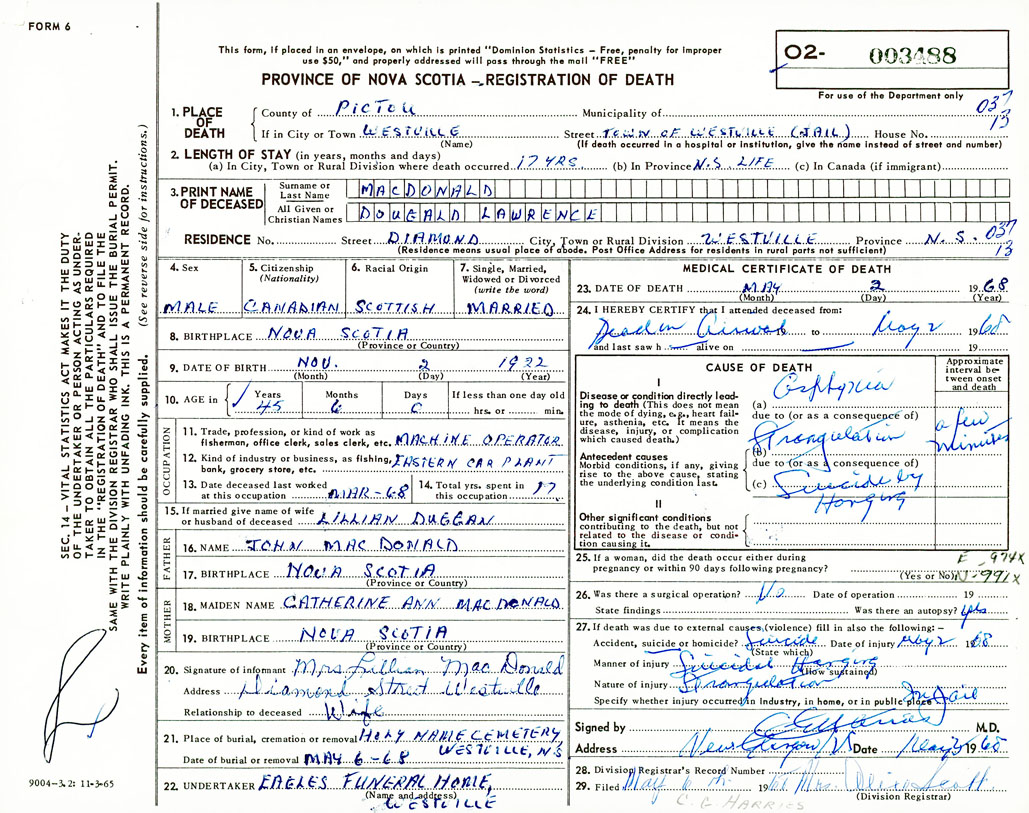 FORM 6
This form, if placed in an envelope, on which is printed "Dominion Statistics – Free, penalty for improper
use $50," and properly addressed will pass through the mail "FREE"
PROVINCE OF NOVA SCOTIA – REGISTRATION OF DEATH
O2- 003488
For use of the Department only
037
13
1. PLACE OF DEATH
County of PICTOU Municipality of
If in City or Town WESTVILLE Street TOWN OF WESTVILLE (JAIL) House No.
(Name) (If death occurred in a hospital or institution, give the name instead of street and number)
2. LENGTH OF STAY (in years, months and days)
(a) In City, Town or Rural Division where death occurred 17 YRS (b) In Province N.S. LIFE (c) In Canada (if immigrant)
3. PRINT NAME OF DECEASED
Surname or Last Name MACDONALD
All Given or Christian Names DOUGALD LAWRENCE
RESIDENCE No. Street DIAMOND City, Town or Rural Division WESTVILLE Province N.S. 037
13
(Residence means usual place of abode. Post Office Address for residents in rural parts not sufficient)
4. Sex
MALE
5. Citizenship
(Nationality)
CANADIAN
6. Racial Origin
SCOTTISH
7. Single, Married,
Widowed or Divorced
(write the word)
MARRIED
8. BIRTHPLACE NOVA SCOTIA
(Province or Country)
9. DATE OF BIRTH NOV. 2 1922
(Month) (Day) (Year)
10. AGE in Years Months Days If less than one day old
45 6 0 hrs. or min.
OCCUPATION
11. Trade, profession, or kind of work as
fisherman, office clerk, sales clerk, etc. MACHINE OPERATOR
12. Kind of industry or business, as fishing,
bank, grocery store, etc. EASTERN CAR PLANT
13. Date deceased last worked
at this occupation MAR-68
14. Total yrs. spent in
this occupation 17
15. If married give name of wife
or husband of deceased LILLIAN DUGGAN
FATHER
16. NAME JOHN MAC DONALD
17. BIRTHPLACE NOVA SCOTIA
(Province or Country)
MOTHER
18. MAIDEN NAME CATHERINE ANN MACDONALD
19. BIRTHPLACE NOVA SCOTIA
(Province or Country)
20. Signature of informant Mrs. Lillian MacDonald
Address Diamond Street Westville
Relationship to deceased Wife
21. Place of burial, cremation or removal HOLY NAME CEMETERY
WESTVILLE, N.S
Date of burial or removal MAY 6-68
22. UNDERTAKER EAGLES FUNERAL HOME,
(Name and address)
WESTVILLE
MEDICAL CERTIFICATE OF DEATH
23. DATE OF DEATH MAY 2 1968
(Month) (Day) (Year)
24. I HEREBY CERTIFY that I attended deceased from:
Dead on Arrival to May 2 1968
and last saw h alive on 19
CAUSE OF DEATH
Approximate
interval be-
tween onset
and death
I
Disease or condition directly lead-
ing to death (This does not mean
the mode of dying, e.g., heart fail-
ure, asthenia, etc. It means the
disease, injury, or complication
which caused death.)
(a) Asphyxia
due to (or as a consequence of)
a few
minutes
Antecedent causes
Morbid conditions, if any, giving
rise to the above cause, stating
the underlying condition last.
(b) Strangulation
due to (or as a consequence of)
(c) Suicide by
Hanging
II
Other significant conditions
contributing to the death, but not
related to the disease or condi-
tion causing it.
25. If a woman, did the death occur either during
pregnancy or within 90 days following pregnancy?
(Yes or No)
E - 974X
N-991X
26. Was there a surgical operation? No Date of operation 19
State findings Was there an autopsy? yes
27. If death was due to external causes (violence) fill in also the following:-
Accident, suicide or homicide? Suicide Date of injury May 2 1968
(State which)
Manner of injury Suicidal Hanging
(How sustained)
Nature of injury Strangulation
Specify whether injury occurred in industry, in home, or in public place In Jail
Signed by M.D.
Address New Glasgow, NS Date May 3 1968
28. Division Registrar's Record Number
29. Filed May 6 19
(Division Registrar)
C. G. HARRIES
SEC. 14 – VITAL STATISTICS ACT MAKES IT THE DUTY
OF THE UNDERTAKER OR PERSON ACTING AS UNDER-
TAKER TO OBTAIN ALL THE PARTICULARS REQUIRED
IN THE "REGISTRATION OF DEATH" AND TO FILE THE
SAME WITH THE DIVISION REGISTRAR WHO SHALL ISSUE THE BURIAL PERMIT.
WRITE PLAINLY WITH UNFADING INK. THIS IS A PERMANENT RECORD.
Every item of information should be carefully supplied. (See reverse side for instructions.)
9004-3.2: 11-3-65